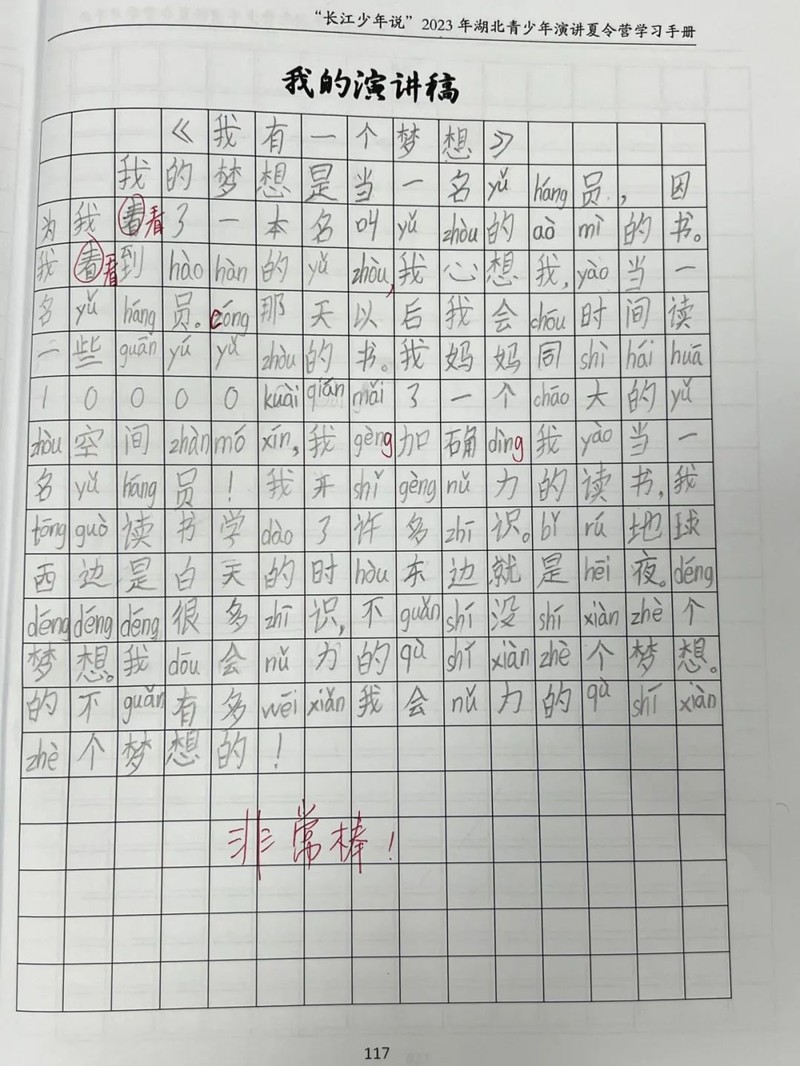 “长江少年说”2023年湖北青少年演讲夏令营学习手册
我的演讲稿
《我有一个梦想》
我的梦想是当一名yǔ háng员，因
为我看看了一本名叫yǔ zhòu的aò mì的书。
我看看到hào hàn的yǔ zhòu,我心想我,yào当一
名yǔ háng员。cóng那天以后我会chōu时间读
一些guān yú yǔ zhòu的书。我妈妈同shì hái huā
10000kuài qián mǎi了一个chāo大的yǔ
zhòu空间zhàn mó xín,我gèng加确dìng我yào当一
名yǔ háng员！我开shǐ gèng nǔ力的读书,我
tōng guò读书学dào了许多zhī识。bǐ rú地球
西边是白天的时hòu东边就是hēi夜。děng
děng děng děng很多zhī识,不guǎn shí没shí xiàn zhè个
梦想。我dōu会nǔ力的qù shí xiàn zhè个梦想。
的不guǎn有多wēi xiǎn我会nǔ力的qù shí xiàn
zhè个梦想的！
非常棒！
117